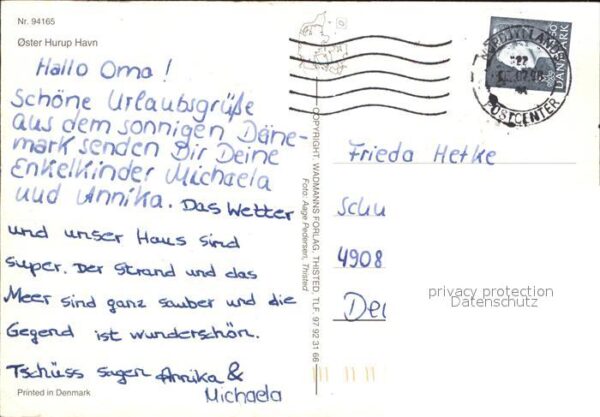 Nr. 94165
Øster Hurup Havn
Hallo Oma!
Schöne Urlaubsgrüße
aus dem sonnigen Däne-
mark senden Dir Deine
Enkelkinder Michaela
und Annika. Das Wetter
und unser Haus sind
super. Der Strand und das
Meer sind ganz sauber und die
Gegend ist wunderschön.
Tschüss sagen Annika &
Michaela
Printed in Denmark
COPYRIGHT. WADMANNS FORLAG, THISTED. TLF. 97 92 31 66
Foto: Aage Pedersen, Thisted
DANMARK
POSTCENTER
Frieda Hetke
Schu
4908
Der
privacy protection
Datenschutz